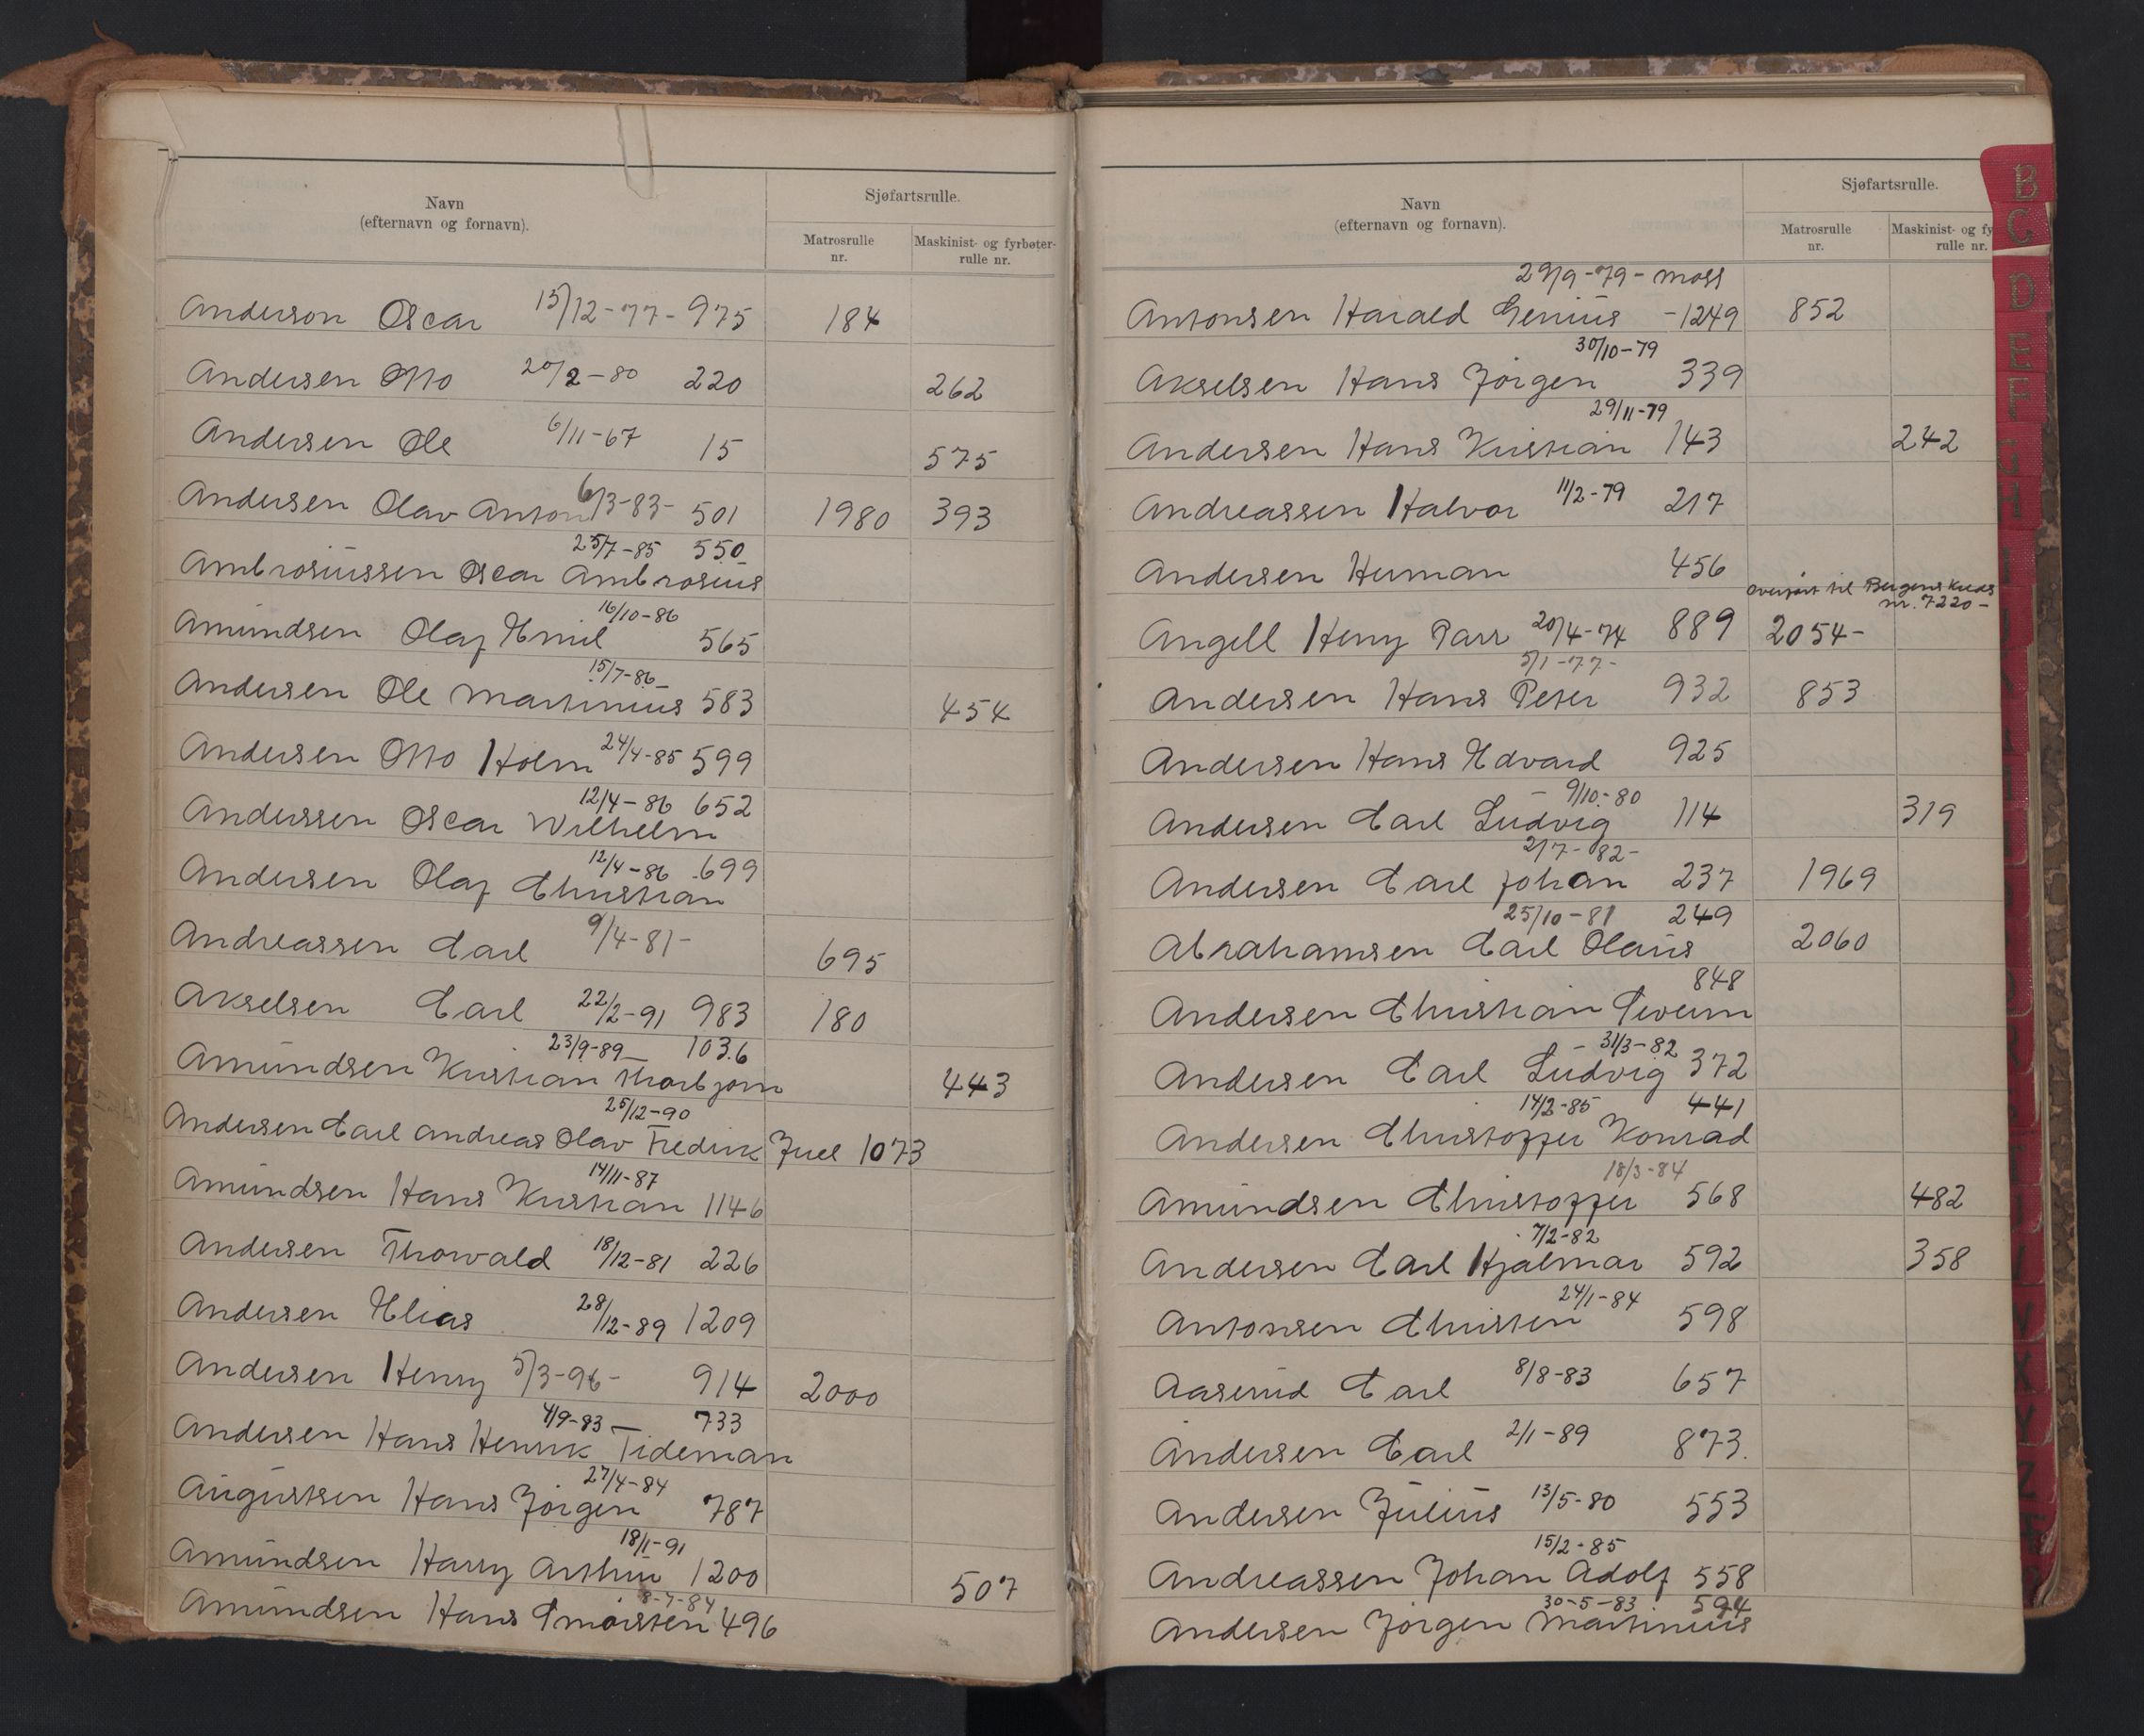 Navn
(efternavn og fornavn).
Sjøfartsrulle.
Matrosrulle
nr.
Maskinist- og fyrbøter-
rulle nr.
Anderson Oscar 15/12-77- 975 184
Andersen Otto 20/2-80 220 262
Andersen Ole 6/11-67 15 575
Andersen Olav Anton 6/3-83- 501 1980 393
25/7-85 550
Ambrosiussen Oscar Ambrosius
16/10-86
Amundsen Olaf Emil 565
15/7-86
Andersen Ole Martinius 583 454
Andersen Otto Holm 24/4-85 599
12/4-86 652
Anderssen Oscar Wilhelm
12/4-86 699
Andersen Olaf Christian
Andreassen Carl 9/4-81- 695
Akselsen Carl 22/2-91 983 180
23/9-89 1036
Amundsen Kristian Thorbjørn 443
25/12-90
Andersen Carl Andreas Olav Fredrik Juel 1073
14/11-87
Amundsen Hans Kristian 1146
Andersen Thorvald 18/12-81 226
Andersen Elias 28/12-89 1209
Andersen Henry 5/3-96- 914 2000
4/9-83 733
Andersen Hans Henrik Tideman
27/4-84
Augustsen Hans Jørgen 787
18/1-91
Amundsen Harry Arthur 1200 507
8-7-84
Amundsen Hans 496
Navn
(efternavn og fornavn).
Sjøfartsrulle.
Matrosrulle
nr.
Maskinist- og fy
rulle nr.
29/9-79- Moss
Antonsen Harald Genius -1249 852
30/10-79
Akselsen Hans Jørgen 339
29/11-79
Andersen Hans Kristian 143 242
Andreassen Halvor 11/2-79 217
Andersen Herman 456
overført til Bergens Kreds
nr. 7220-
Angell Henry Parr 20/4-74 889 2054-
5/1-77-
Andersen Hans Peter 932 853
Andersen Hans Edvard 925
- 9/10-80
Andersen Carl Ludvig 114 319
2/7-82-
Andersen Carl Johan 237 1969
25/10-81 249
Abrahamsen Carl Olaus 2060
848
Andersen Christian
- 31/3-82
Andersen Carl Ludvig 372
14/2-85 441
Andersen Christoffer Konrad
18/3-84
Amundsen Christoffer 568 482
7/2-82
Andersen Carl Hjalmar 592 358
24/1-84
Antonsen Christen 598
Aaserud Carl 8/8-83 657
Andersen Carl 2/1-89 873.
Andersen Julius 13/5-80 553
15/2-85
Andreassen Johan Adolf 558
30-5-83 594
Andersen Jørgen Martinius
B
C
D
E
F